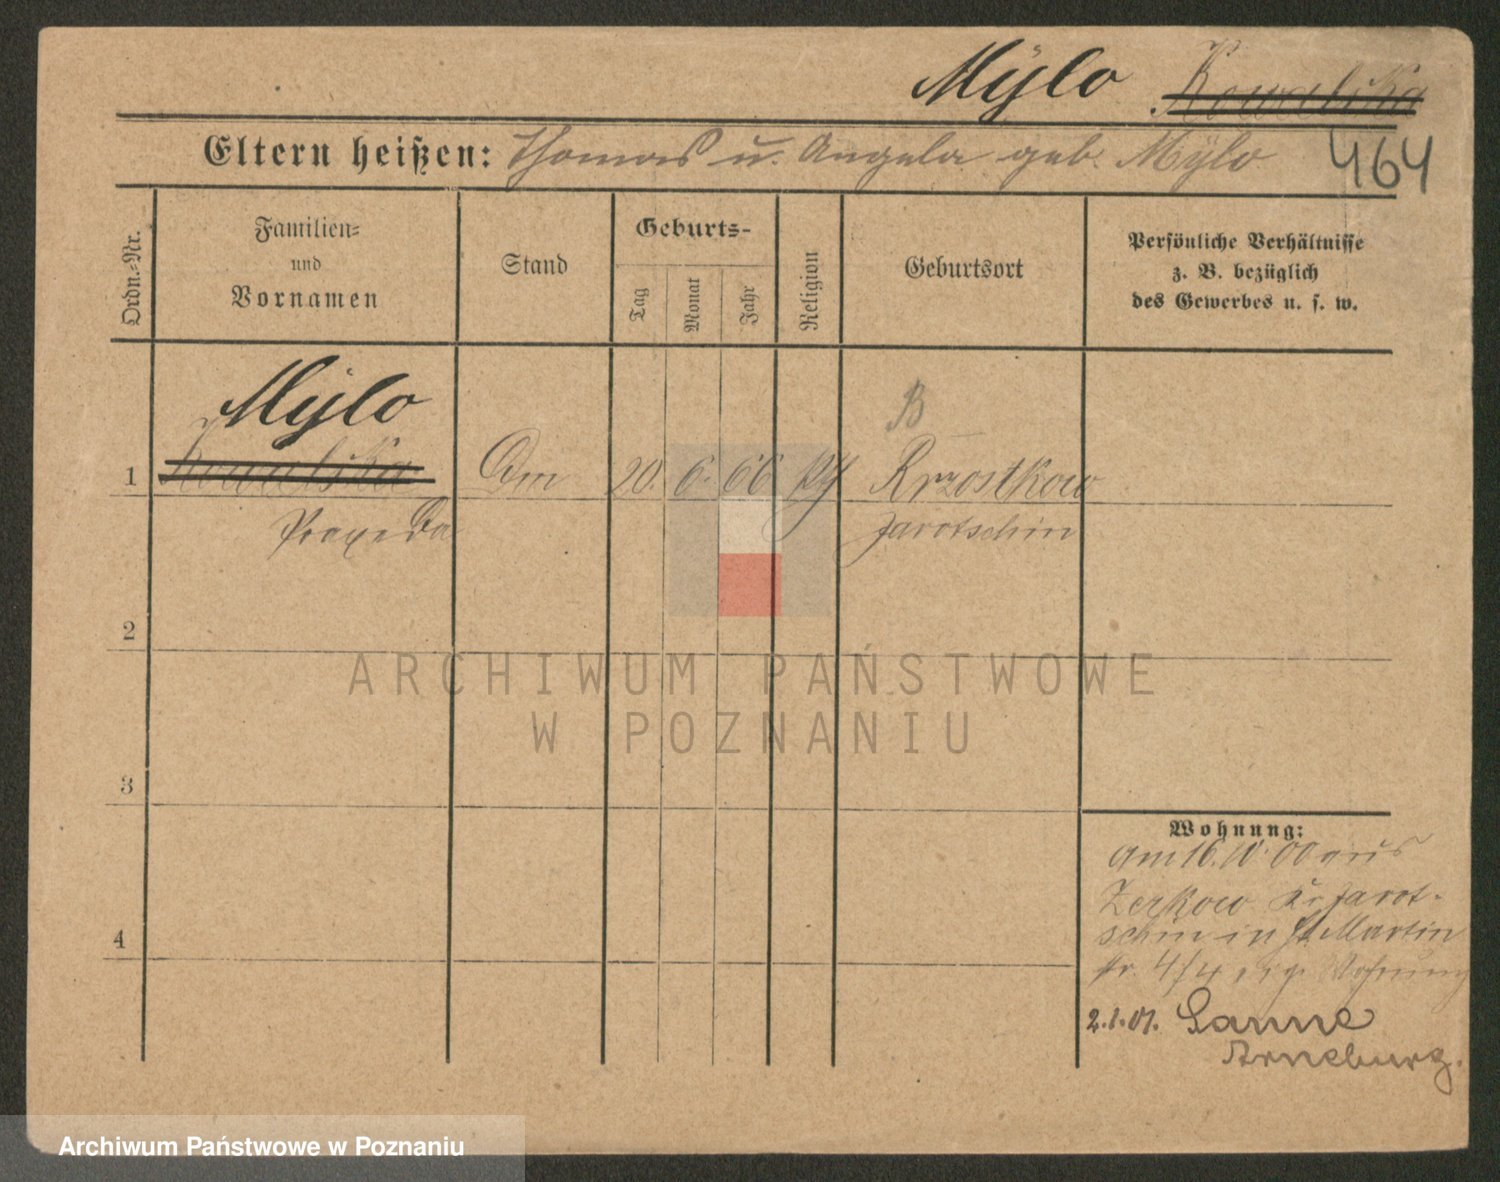 Mÿlo Kowalska
Eltern heißen: Thomas u. Angela geb. Mÿlo
464
Ordn.-Nr.
Familien-
und
Vornamen
Stand
Geburts-
Tag
Monat
Jahr
Religion
Geburtsort
Persönliche Verhältnisse
z. B. bezüglich
des Gewerbes u. s. w.
Mÿlo
B
1 Kowalska 20. 6. 66 Krzostkow
Praxeda Jarotschin
2
ARCHIWUM PAŃSTWOWE
W POZNANIU
3
Wohnung:
Am 16. 10. 00 aus
Zerkow Kr Jarot-
schin in St. Martin
str. 4/4 Wohnung
4
2.1.01. Sanne
Arneburg.
Archiwum Państwowe w Poznaniu